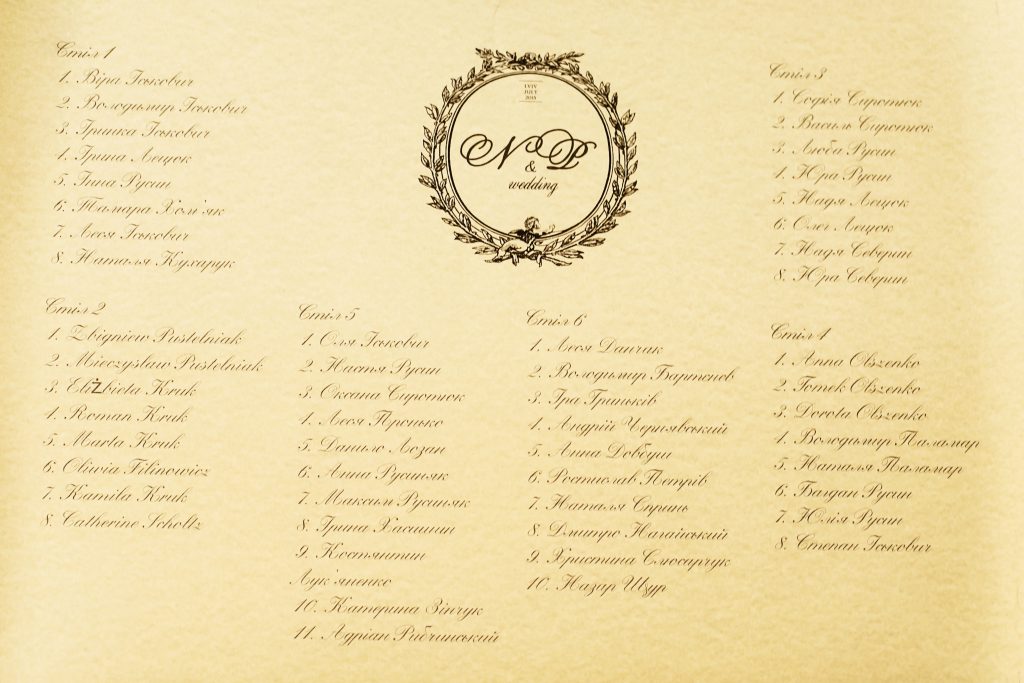 Стіл 1
1. Віра Іськович
2. Володимир Іськович
3. Іринка Іськович
4. Ірина Лещок
5. Інна Русин
6. Тамара Хом'як
7. Леся Іськович
8. Наталя Кухарук
LVIV
JULY
2015
N & P
wedding
Стіл 3
1. Софія Сиротюк
2. Василь Сиротюк
3. Люба Русин
4. Юра Русин
5. Надя Лещок
6. Олег Лещок
7. Надя Северин
8. Юра Северин
Стіл 2
1. Zbigniew Pustelniak
2. Mieczysław Pustelniak
3. EliŻbieta Kruk
4. Roman Kruk
5. Marta Kruk
6. Oliwia Filinowicz
7. Kamila Kruk
8. Catherine Scholtz
Стіл 5
1. Оля Іськович
2. Настя Русин
3. Оксана Сиротюк
4. Леся Пронько
5. Данило Лозан
6. Анна Русиняк
7. Максим Русиняк
8. Ірина Хасишин
9. Костянтин
Лук'яненко
10. Катерина Зінчук
11. Адріан Рибчинський
Стіл 6
1. Леся Данчак
2. Володимир Бартенєв
3. Іра Гриньків
4. Андрій Чернявський
5. Анна Довбуш
6. Ростислав Петрів
7. Наталя Сприль
8. Дмитро Нагайський
9. Христина Слюсарчук
10. Назар Щур
Стіл 4
1. Anna Olszenko
2. Tomek Olszenko
3. Dorota Olszenko
4. Володимир Паламар
5. Наталя Паламар
6. Багдан Русин
7. Юлія Русин
8. Степан Іськович